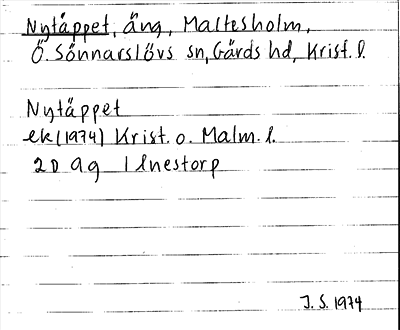 Nytäppet, äng, Maltesholm,
Ö. Sönnarslövs sn, Gärds hd, Krist. l.
Nytäppet
ek (1974) Krist. o. Malm. l.
2D 9g 1 Enestorp
J.S. 1974